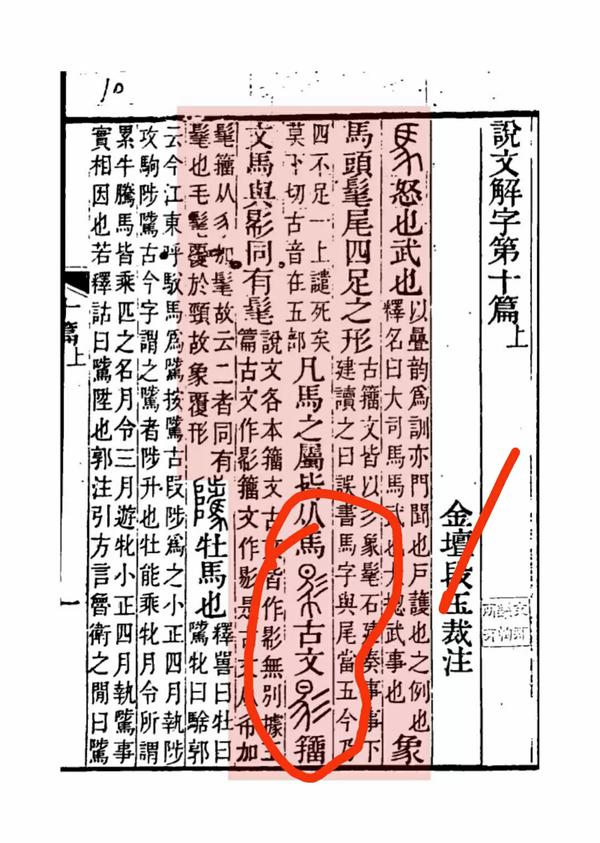 10
說文解字第十篇上
金壇段玉裁注
馬怒也武也以疊韵爲訓亦門聞也戶護也之例也
釋名曰大司馬馬武也大總武事也象
馬頭髦尾四足之形古籒文皆以彡象髦石建奏事事下
建讀之曰誤書馬字與尾當五今乃
四不足一上譴死矣
莫下切古音在五部凡馬之屬皆从馬古文籒
文馬與影同有髦說文各本籒文古文皆作影無別據玉
篇古文作影籒文作影是古文从加
髦籒从彡加髦故云二者同有
髦也毛髦覆於頸故象覆形騭牡馬也釋嘼曰牡曰
騭牝曰騇郭
云今江東呼馭馬爲騭按騭古叚陟爲之小正四月執陟
攻駒陟騭古今字謂之騭者陟升也牡能乘牝月令所謂
累牛騰馬皆乘匹之名月令三月遊牝小正四月執騭事
實相因也若釋詁曰騭陞也郭注引方言魯衛之閒曰騭
十篇上
一